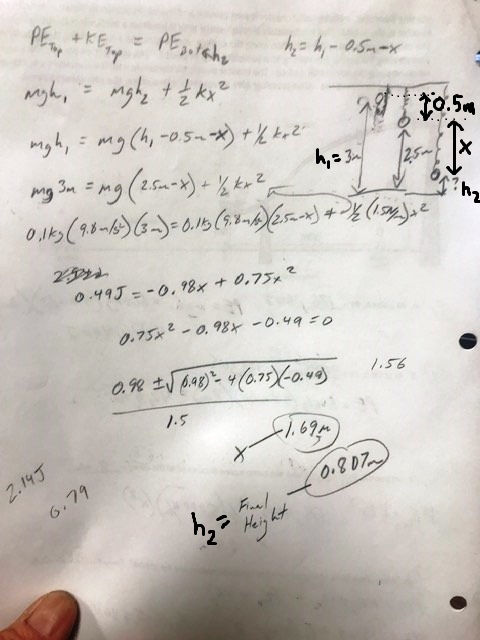 PE_Top + KE_Top = PE_Bot
h₂ = h₁ - 0.5m - x
mgh₁ = mgh₂ + ½ kx²
mgh₁ = mg(h₁ - 0.5m - x) + ½ kx²
mg 3m = mg (2.5m - x) + ½ kx²
0.1kg (9.8m/s²)(3m) = 0.1kg (9.8m/s²)(2.5m - x) + ½ (1.5N/m) x²
0.5m
x
h₁ = 3m
2.5m
?
h₂
0.49J = -0.98x + 0.75x²
0.75x² - 0.98x - 0.49 = 0
0.98 ± √(0.98)² - 4(0.75)(-0.49)
1.5
1.56
x
1.69m
0.807m
h₂ = Final Height
2.14J
0.79